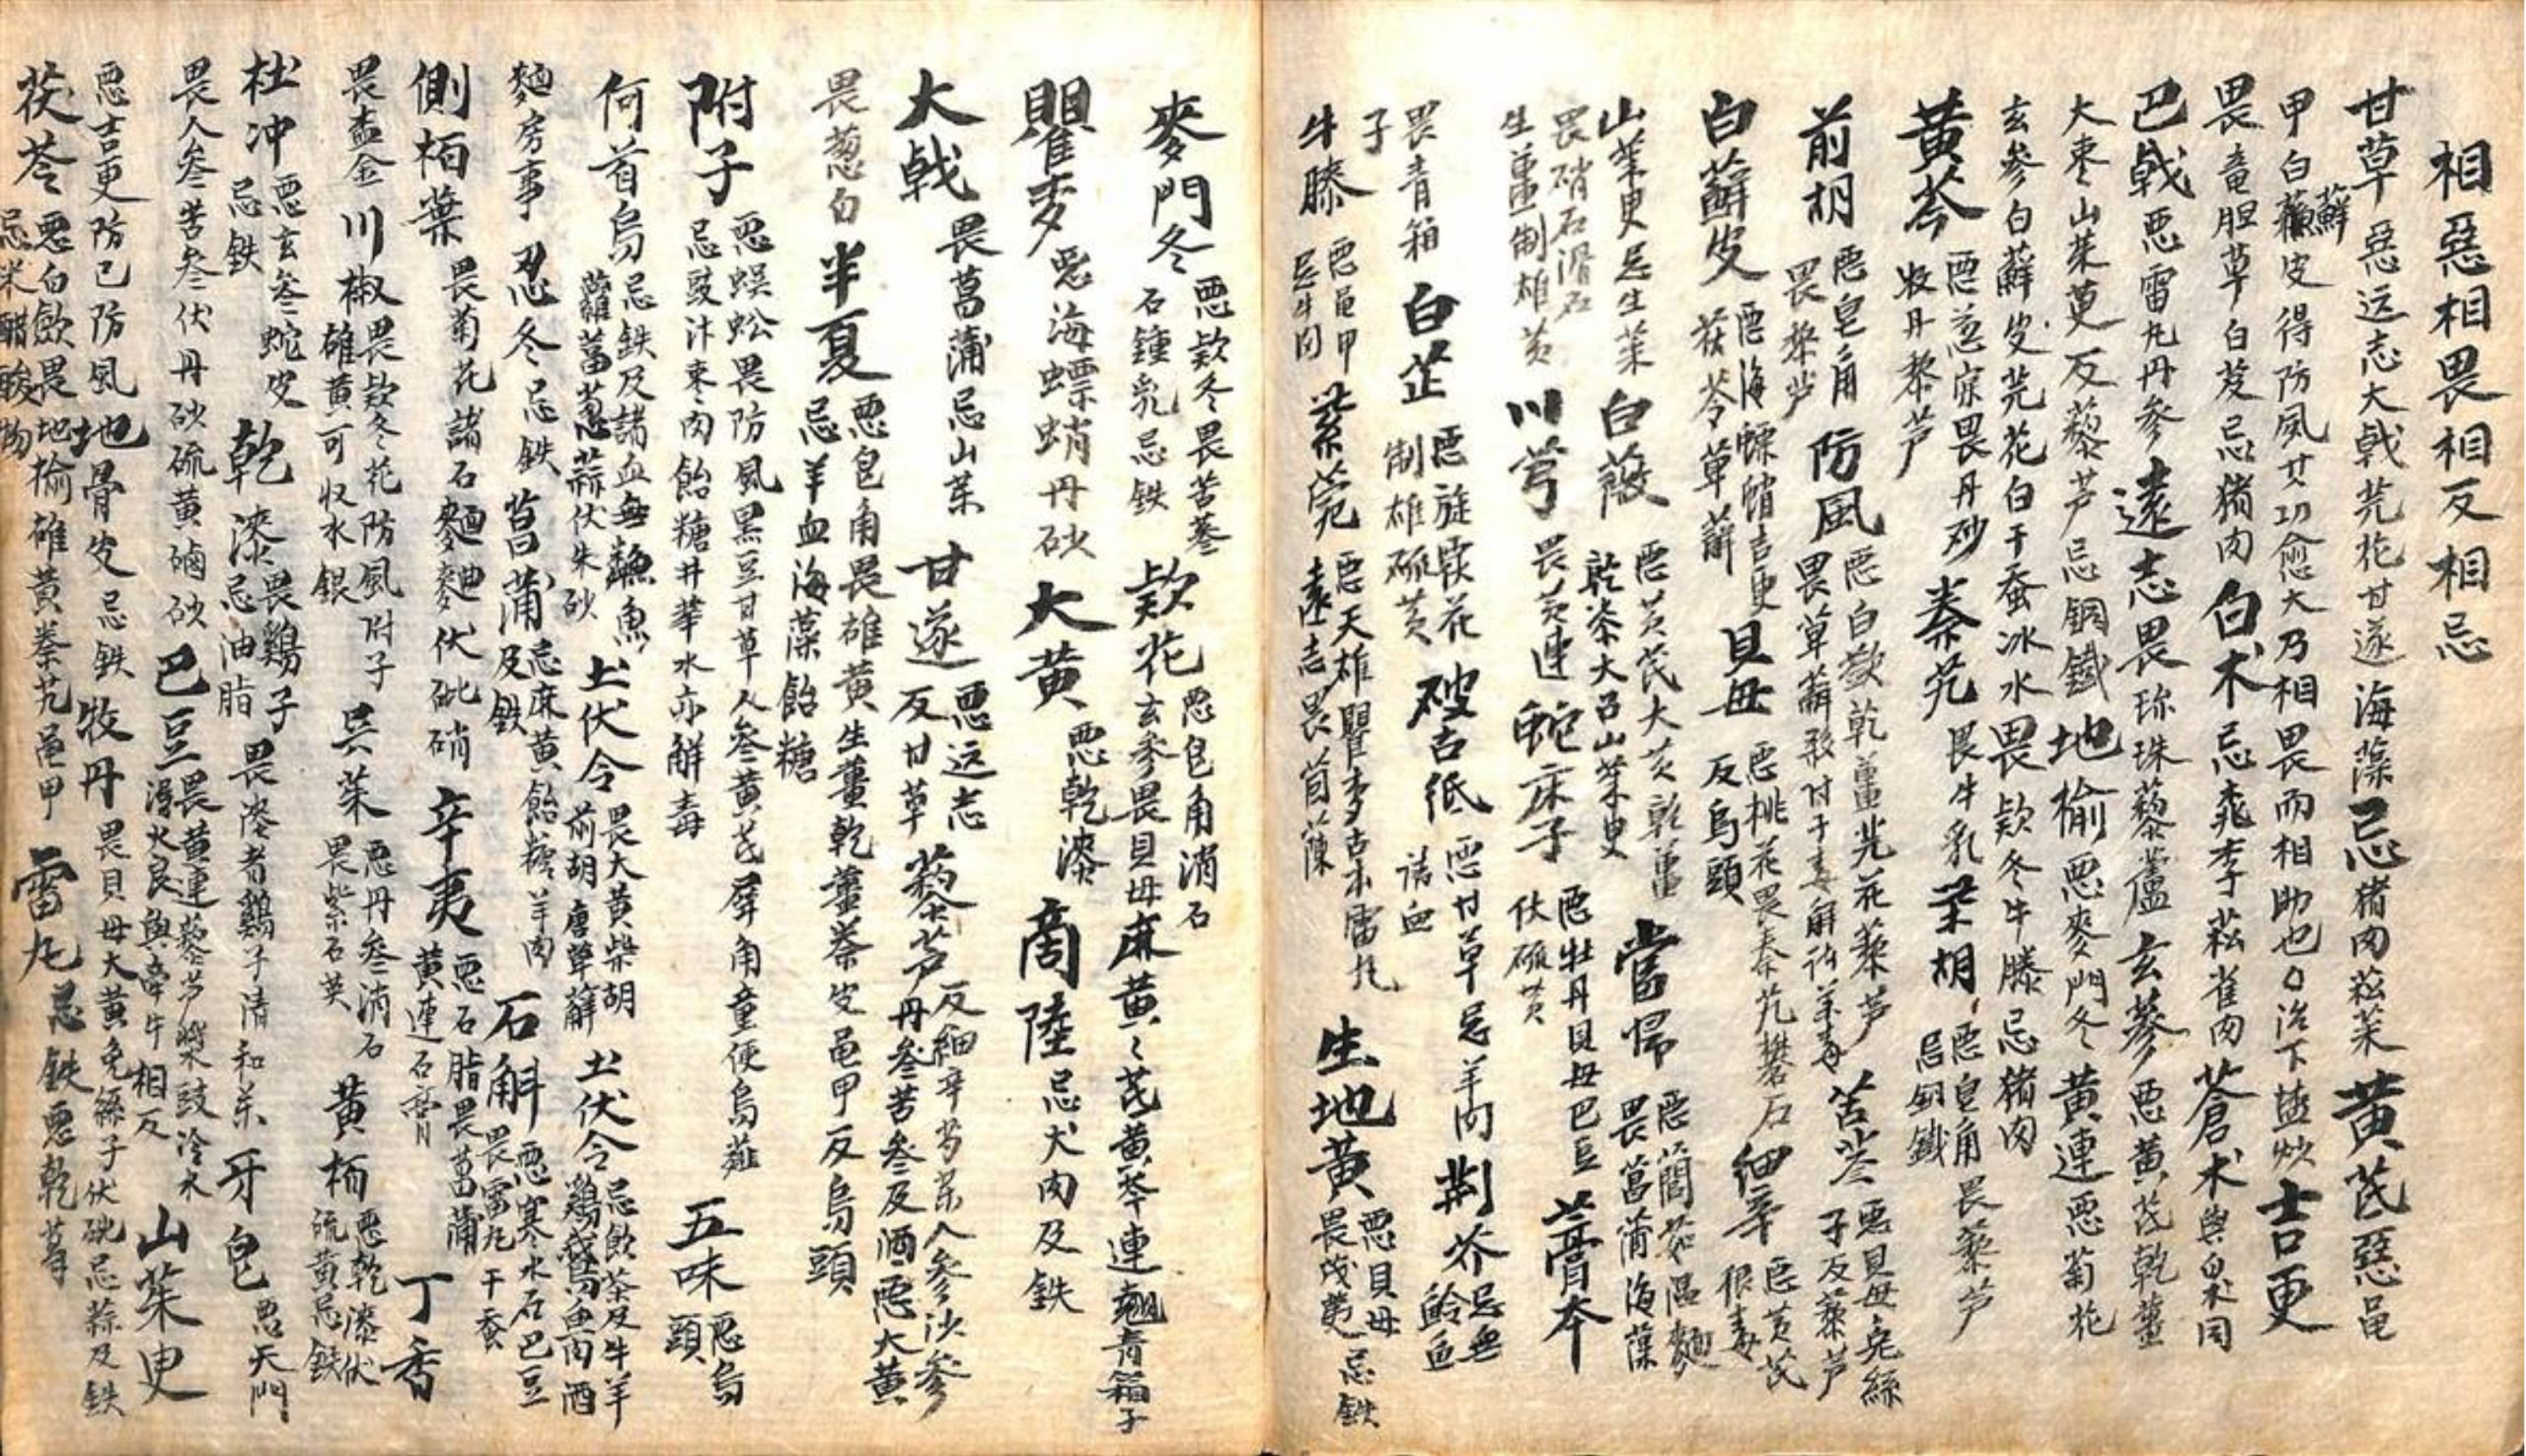 相惡相畏相反相忌
甘草惡远志大戟芫花甘遂海藻忌猪肉菘菜黄芪惡黾
甲白蘚皮得防風其功愈大乃相畏而相助也治下盐炒吉更
畏竜胆草白芨忌猪肉白术忌桃李菘雀肉蒼术與白朮同
巴戟惡雷丸丹参遠志畏珎珠藜蘆玄蔘惡黄芪乾薑
大枣山茱萸反藜芦忌銅鐵地榆惡麥門冬黄連惡菊花
玄参白蘚皮芫花白干蚕冰水畏欵冬牛膝忌猪肉
黄芩惡葱寀畏丹砂
牧丹藜芦秦艽畏牛乳柴胡惡皂角畏藜芦
忌銅鐵
前胡惡皂角
畏藜芦防風惡白歛乾薑芫花藜芦
畏草薢殺付子毒解諸羊毒苦參惡貝母兔絲
子反藜芦
白蘚皮惡海螵蛸吉更
茯苓草薢貝母惡桃花畏秦艽礬石
反烏頭細辛惡黄芪
狼毒
山茱更忌生菜白薇惡黄芪大黄乾薑
乾漆大召山茱更當帰惡䕡茹温麵
畏菖蒲海藻
畏硝石滑石
生薑制雄黄川芎畏黄連蛇床子惡牡丹貝母巴豆
伏硫黄藁本
畏青箱
子白芷惡旋覆花
制雄硫黄破古紙惡甘草忌羊肉
諸血荆芥忌無
鯰魚
牛膝惡黾甲
忌牛肉紫菀惡天雄瞿麥古本雷丸
遠志畏茵蔯生地黄惡貝母
畏芜荑忌鉄
麥門冬惡欵冬畏苦蔘
石鍾乳忌鉄欵花惡皂角消石
玄参畏貝母麻黄黄芪黄芩連翹青箱子
瞿麥惡海螵蛸丹砂大黄惡乾漆商陸忌犬肉及鉄
大戟畏菖蒲忌山茱甘遂惡远志
反甘草藜芦反細辛芍藥人参沙参
丹参苦参及酒惡大黄
畏葱白半夏惡皂角畏雄黄生薑乾薑秦皮黾甲反烏頭
忌羊血海藻飴糖
附子惡蜈蚣畏防風黑豆甘草人参黄芪犀角童便烏韮
忌豉汁枣肉飴糖井華水亦解毒五味惡烏
頭
何首烏忌鉄及諸血無鱗魚
蘿葍葱蒜伏朱砂土伏令畏大黄柴胡
前胡唐草薢土伏令忌飲茶及牛羊
鷄鵞魚肉酒
麵房事忍冬忌鉄菖蒲忌麻黄飴糖羊肉
及鉄石斛惡寒水石巴豆
畏雷丸干蚕
側栢葉畏菊花諸石麵曲
麥伏砒硝辛夷惡石脂畏菖蒲
黄連石膏丁香
畏盃金川椒畏欵冬花防風附子
雄黄可収水銀吴茱惡丹参消石
畏紫石英黄栢惡乾漆伏
流黄忌鉄
杜冲惡玄参蛇皮
忌鉄乾漆畏鷄子
忌油脂畏漆者鷄子清和茶牙皂惡天門
畏人参苦参伏丹砂硫黄磠砂巴豆畏黄連藜芦漿豉冷水
得火良與牵牛相反山茱更
惡吉更防己防風地骨皮忌鉄牧丹畏貝母大黄兔絲子伏砒忌蒜及鉄
茯苓惡白歛畏地榆雄黄秦艽黾甲
忌米醋酸物雷丸忌鉄惡乾葛